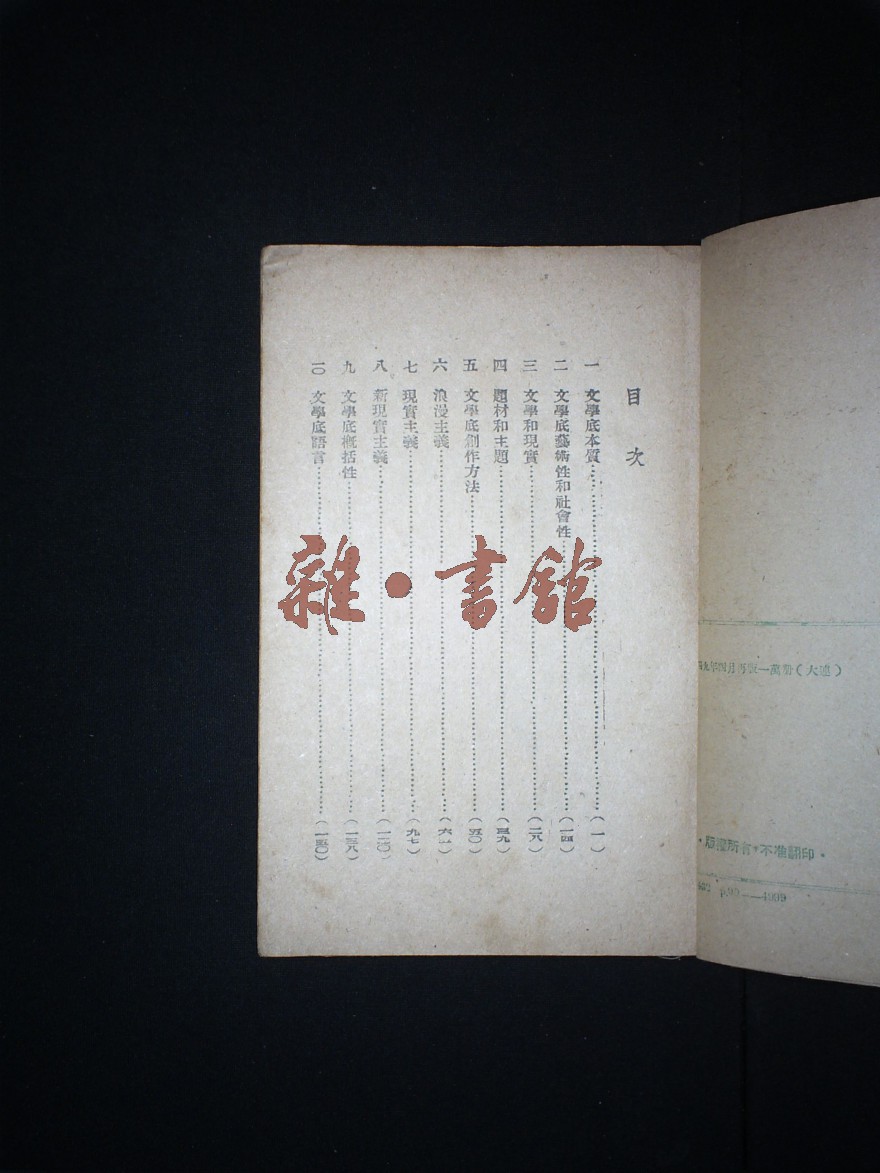 目 次
一 文學底本質……(一)
二 文學底藝術性和社會性……(一四)
三 文學和現實……(二八)
四 題材和主題……(四九)
五 文學底創作方法……(五〇)
六 浪漫主義……(六一)
七 現實主義……(九七)
八 新現實主義……(一二〇)
九 文學底概括性……(一三八)
一〇 文學底語言……(一五〇)
雜·書館
年四月再版一萬册(大連)
·版權所有*不准翻印·